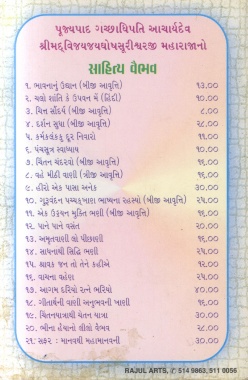 પૂજ્યપાદ ગચ્છાધિપતિ આચાર્યદેવ
શ્રીમદ્વિજયજયઘોષસૂરીશ્વરજી મહારાજાનો
સાહિત્ય વૈભવ
૧. ભાવનાનું ઉદ્યાન (બીજી આવૃત્તિ) ૧૩.૦૦
૨. ચલો શાંતિ કે ઉપવન મેં (હિંદી) ૧૦.૦૦
૩. ચિંતન સૌંદર્ય (બીજી આવૃત્તિ) ૮.૦૦
૪. દર્શન સુધા (બીજી આવૃત્તિ) ૨૮.૦૦
૫. કર્મકલંકકુ દૂર નિવારો ૧૧.૦૦
૬. પંચસૂત્ર સ્વાધ્યાય ૧૦.૦૦
૭. ચિંતન ચંદરવો (બીજી આવૃત્તિ) ૧૬.૦૦
૮. વહે મીઠી વાણી (બીજી આવૃત્તિ) ૧૬.૦૦
૯. હીરો એક પાસા અનેક ૩૦.૦૦
૧૦. ગુરૂવંદન પચ્ચક્ખાણ ભાષ્યના રહસ્યો (બીજી આવૃત્તિ) ૨૫.૦૦
૧૧. એક ઉડ્ડયન મુક્તિ ભણી (બીજી આવૃત્તિ) ૧૬.૦૦
૧૨. પાને પાને વસંત ૨૦.૦૦
૧૩. અમૃતવાણી લો પીછાણી ૧૬.૦૦
૧૪. સાધનાથી સિદ્ધિ ભણી ૨૫.૦૦
૧૫. શ્રાવક જન તો તેને કહીએ ૨૫.૦૦
૧૬. વાચના વહેણ ૨૫.૦૦
૧૭. આગમ દરિયો રત્ને ભરિયો ૪૦.૦૦
૧૮. ગીતાર્થની વાણી અનુભવની ખાણી ૧૬.૦૦
૧૯. ચિંતનયાત્રાથી ચેતન યાત્રા ૩૦.૦૦
૨૦. ભીના હૈયાનો લીલો વૈભવ ૨૮.૦૦
૨૧. સફર : માનવથી મહામાનવની ૩૦.૦૦
RAJUL ARTS, ✆ 514 9863, 511 0056